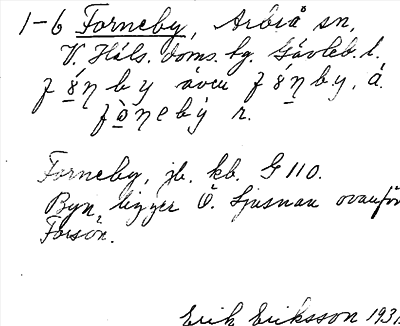 1-6 Forneby, Arbrå sn.
V. Häls. doms. hg. Gävleb. l.
även
r.
Forneby, jb. kb. G 110.
Byn ligger Ö. Ljusnan ovanför
Forsön.
Erik Eriksson 193